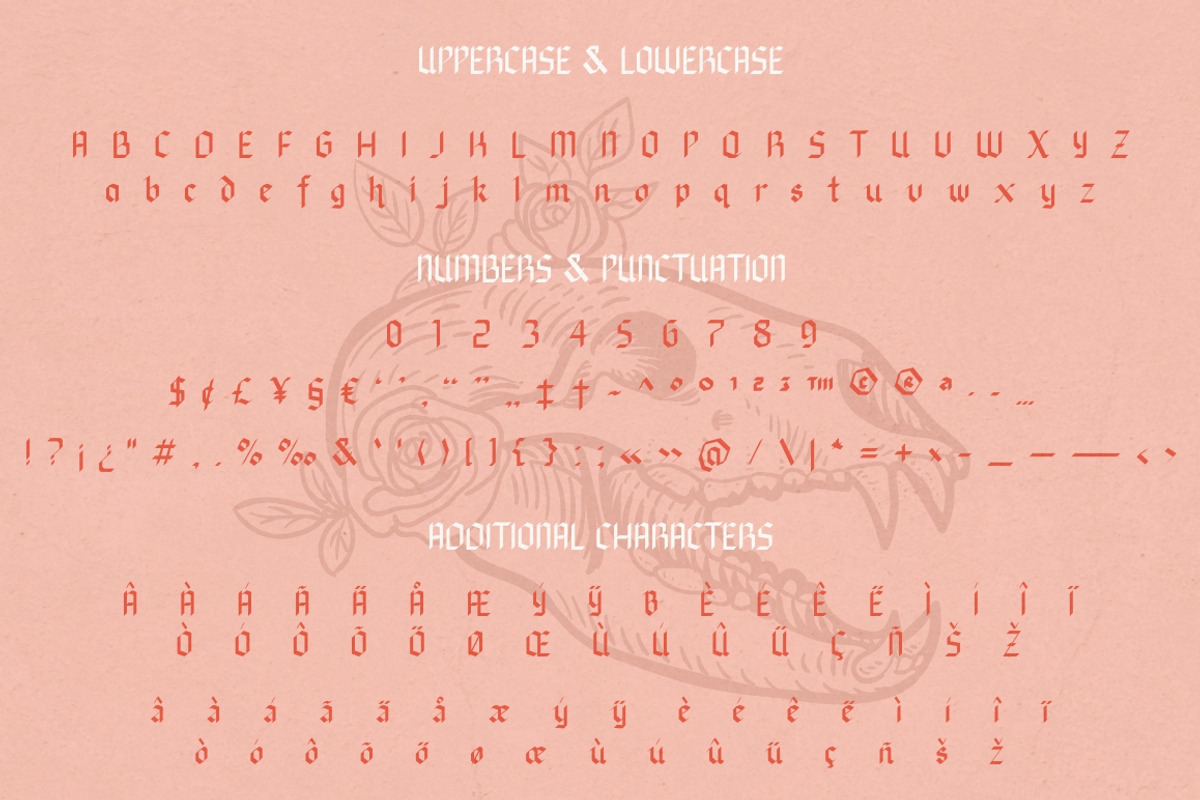 UPPERCASE & LOWERCASE
A B C D E F G H I J K L M N O P Q R S T U V W X Y Z
a b c d e f g h i j k l m n o p q r s t u v w x y z
NUMBERS & PUNCTUATION
0 1 2 3 4 5 6 7 8 9
$ ¢ £ ¥ § € ‘ ’ ‚ “ ” „ ‡ † ~ ^ ° º ¹ ² ³ ™ © ® ª . - …
! ? ¡ ¿ " # , . % ‰ & ` ' ( ) [ ] { } : ; « » @ / \ | * = + × - _ – — ‹ ›
ADDITIONAL CHARACTERS
Â À Á Ã Ä Å Æ Ý Ÿ È É Ê Ë Ì Í Î Ï
Ò Ó Ô Õ Ö Ø Œ Ù Ú Û Ü Ç Ñ Š Ž
â à á ã ä å æ ý ÿ è é ê ë ì í î ï
ò ó ô õ ö ø œ ù ú û ü ç ñ š ž